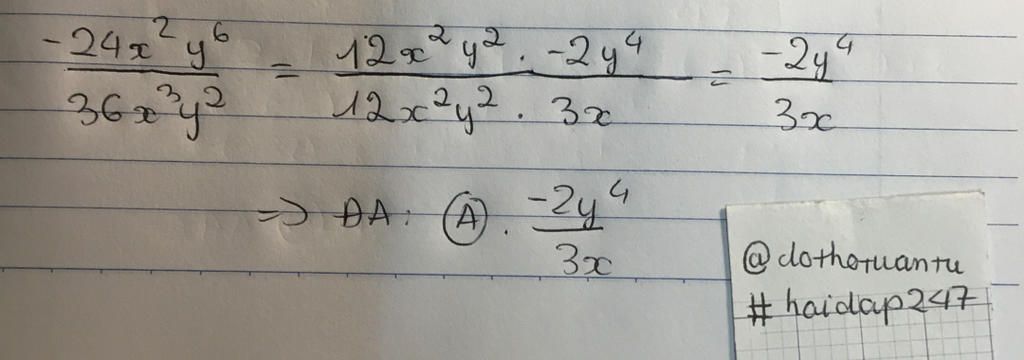 -24x²y⁶/36x³y² = 12x²y² . -2y⁴/12x²y² . 3x = -2y⁴/3x
=> ĐA: A. -2y⁴/3x
@dothotuantu
#haidap247